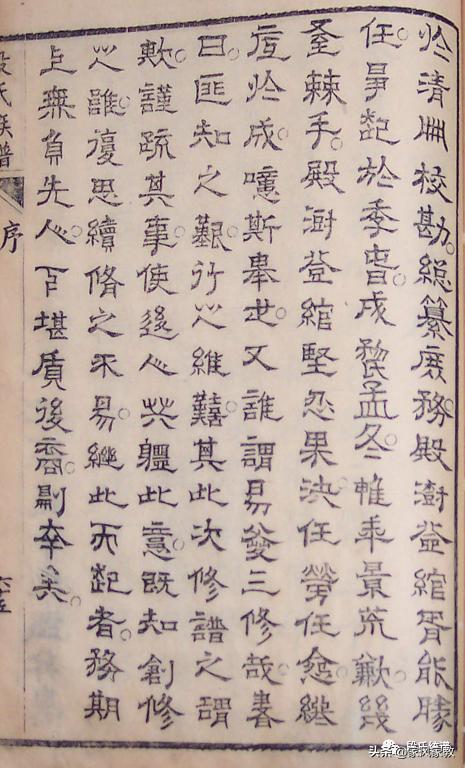 於清冊校勘總纂庶務殿澍益綰胥能勝
任事起於季春成於孟冬惟年景荒歉幾
至棘手殿澍益綰堅忍果決任勞任怨繼
底於成噫斯舉也又誰謂易於三修哉書
曰匪知之艱行之維囏其此次修譜之謂
歟謹疏其事使後人共軆此意既知創修
之難復思續脩之不易繼此而起者務期
上無負先人下堪質後裔則幸矣
段氏族譜
序
头条@家族家教